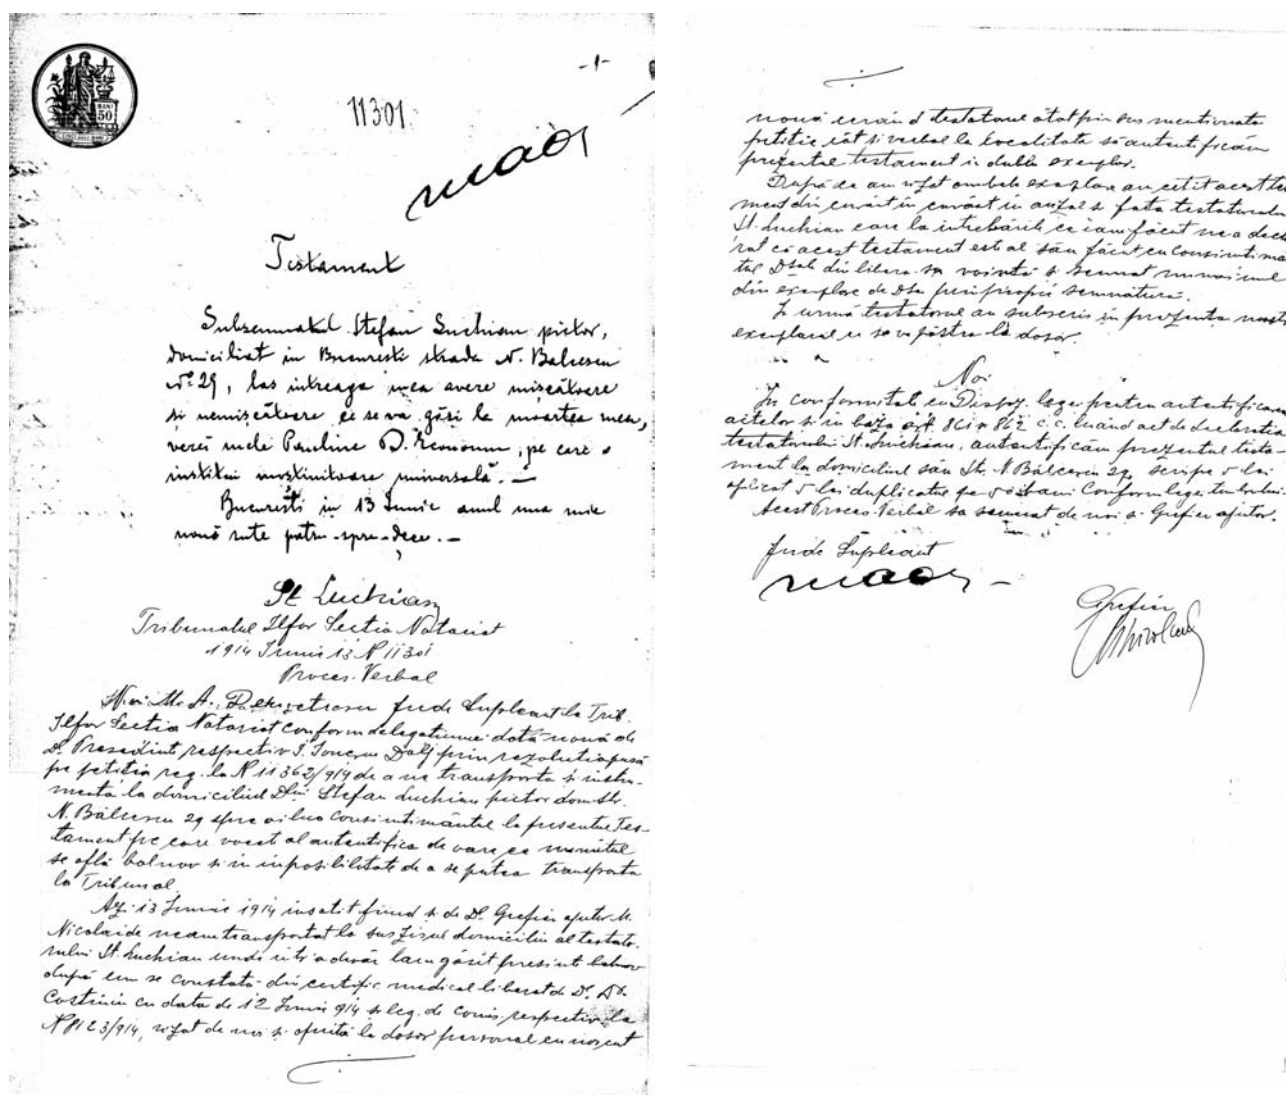 -1-
BANI
50
11301
Testament
Subsemnatul Ștefan Luchian pictor,
domiciliat in București strada N. Balcescu
No 29, las intreaga mea avere mișcătoare
și nemișcătoare ce se va găsi la moartea mea,
verei mele Paulina D. Economu, pe care o
institui moștenitoare universală. —
București in 13 Iunie anul una mie
nouă sute patru-spre-dece. —
St Luchian
Tribunalul Ilfov Sectia Notariat
1914 Iunie 13 N 11301
Proces-Verbal
Noi M. A. jude Supleant la Trib.
Ilfov Sectia Notariat conform delegatiunei dată nouă de
D. Presedinte respectiv prin rezolutia pusă
pe petitia reg. la N 11362/914 de a ne transporta și instru-
menta la domiciliul Dlui Stefan Luchian pictor dom. Str.
N. Bălcescu 29 spre a i lua consimtimântul la presentul Tes-
tament pe care voeste al autentifica de oare ce numitul
se află bolnav si in imposibilitate de a se putea transporta
la Tribunal.
Az. 13 Iunie 1914 insotit fiind și de D. Grefier ajutor M.
Nicolaide ne am transportat la sus zisul domiciliu al testato-
rului St. Luchian unde intr'adevăr lam găsit present bolnav
după cum se constată din certific. medical liberat de D. Dr.
Costiniu cu data de 12 Iunie 914 și leg. de comis. respectiv la
N 8123/914, vizat de noi și oprită la dosar personal cunoscut
nouă cerând testatorul atât prin sus mentionata
petitie cât si verbal la localitate să autentificăm
prezentul testament in dublu exemplar.
După ce am vizat ambele exemplare am cetit acest tes
ment din cuvânt în cuvânt in auzul și fata testatorului
St. Luchian care la intrebările ce i am făcut ne a decla
rat că acest testament este al său făcut cu consimtimân
tul Dsale din libera sa vointă și semnat numai unul
din exemplare de Dsa prin propria semnătură.
In urmă testatorul au subscris in prezenta noastră
exemplarul ce se va păstra la dosar.
Noi
In conformitate cu Dispoz. legei pentru autentificarea
actelor și in baza art. 861 și 862 c.c. luând act de declaratia
testatorului St. Luchian, autentificăm prezentul testa-
ment la domiciliul său Str. N Bălcescu 29, scris pe 5 lei
aplicat 5 lei duplicatul pe 50 bani Conform legei timbrului.
Acest Proces-Verbal sa semnat de noi și Grefier ajutor.
Jude Supleant
Grefier